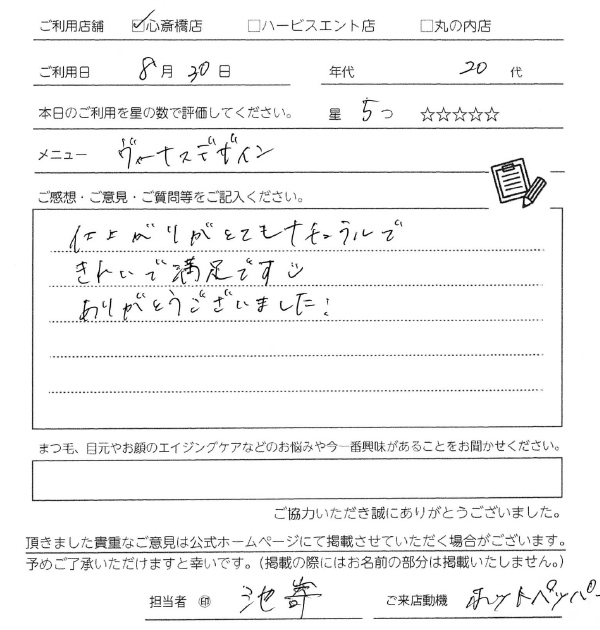 ご利用店舗 ☑心斎橋店 □ハービスエント店 □丸の内店
ご利用日 8月30日 年代 20代
本日のご利用を星の数で評価してください。 星 5つ ☆☆☆☆☆
メニュー ヴィーナスデザイン
ご感想・ご意見・ご質問等をご記入ください。
仕上がりがとてもナチュラルで
きれいで満足です
ありがとうございました!
まつ毛、目元やお顔のエイジングケアなどのお悩みや今一番興味があることをお聞かせください。
ご協力いただき誠にありがとうございました。
頂きました貴重なご意見は公式ホームページにて掲載させていただく場合がございます。
予めご了承いただけますと幸いです。(掲載の際にはお名前の部分は掲載いたしません。)
担当者 ㊞ 池嵜 ご来店動機 ホットペッパー